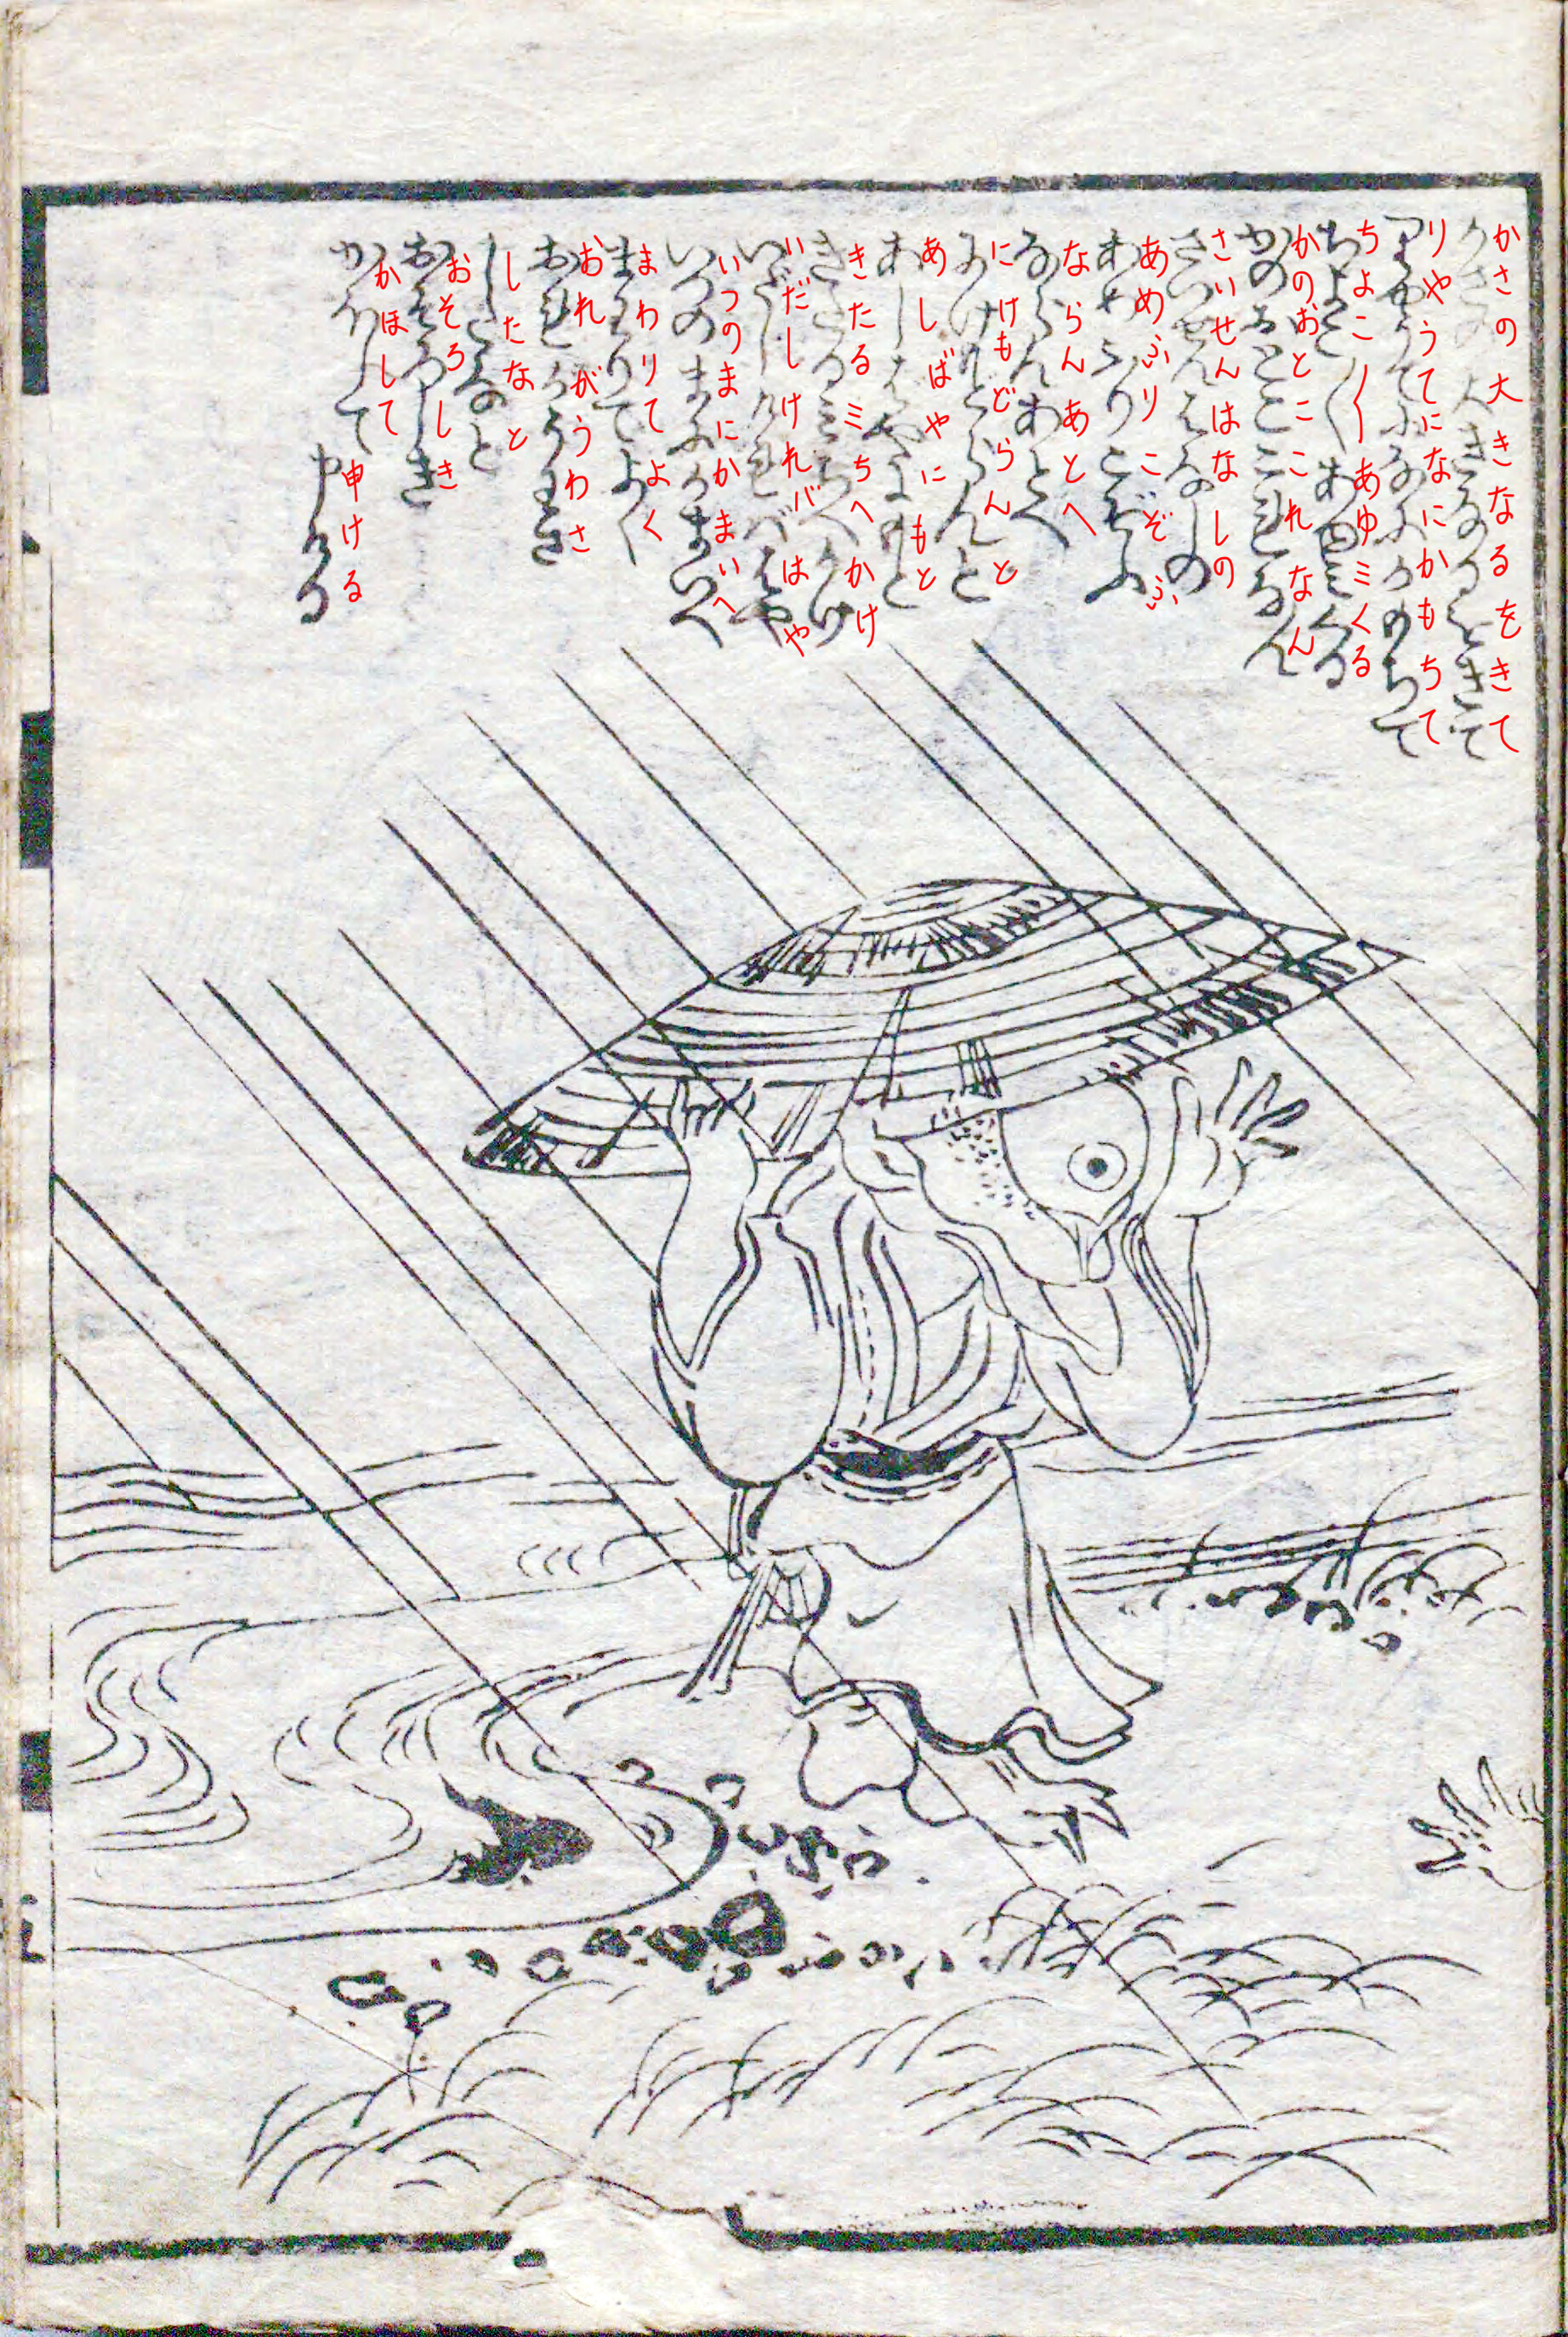 かさの大きなるをきて
りやうてになにかもちて
ちよこ〳〵あゆミくる
かのおとここれなん
さいせんはなしの
あめふりこぞふ
ならんあとへ
にけもどらんと
あしばやにもと
きたるミちへかけ
いだしけれバはや
いつのまにかまいへ
まわりてよく
おれがうわさ
したなと
おそろしき
かほして申ける